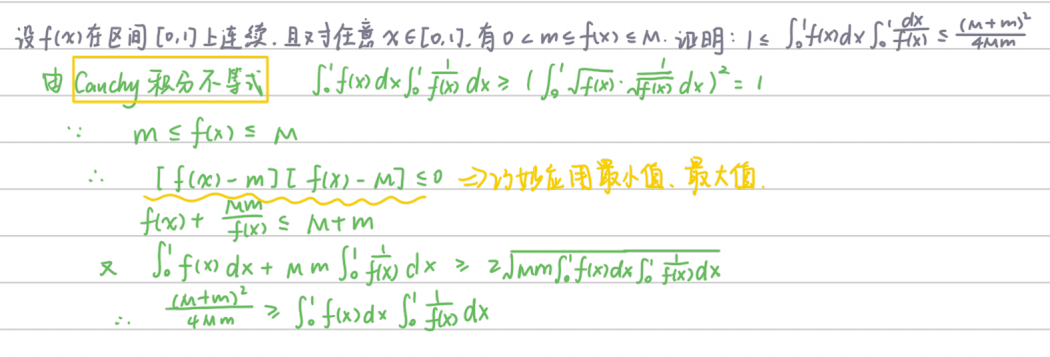 设f(x)在区间[0,1]上连续.且对任意x∈[0,1].有0<m≤f(x)≤M.证明:1≤∫₀¹f(x)dx∫₀¹dx/f(x)≤(M+m)²/4Mm
由 Cauchy 积分不等式 ∫₀¹f(x)dx∫₀¹1/f(x)dx≥(∫₀¹√f(x)·1/√f(x)dx)²=1
∵ m≤f(x)≤M
∴ [f(x)-m][f(x)-M]≤0 ⇒巧妙应用最小值、最大值.
f(x)+Mm/f(x)≤M+m
又 ∫₀¹f(x)dx+Mm∫₀¹1/f(x)dx≥2√(Mm∫₀¹f(x)dx∫₀¹1/f(x)dx)
∴ (M+m)²/4Mm≥∫₀¹f(x)dx∫₀¹1/f(x)dx